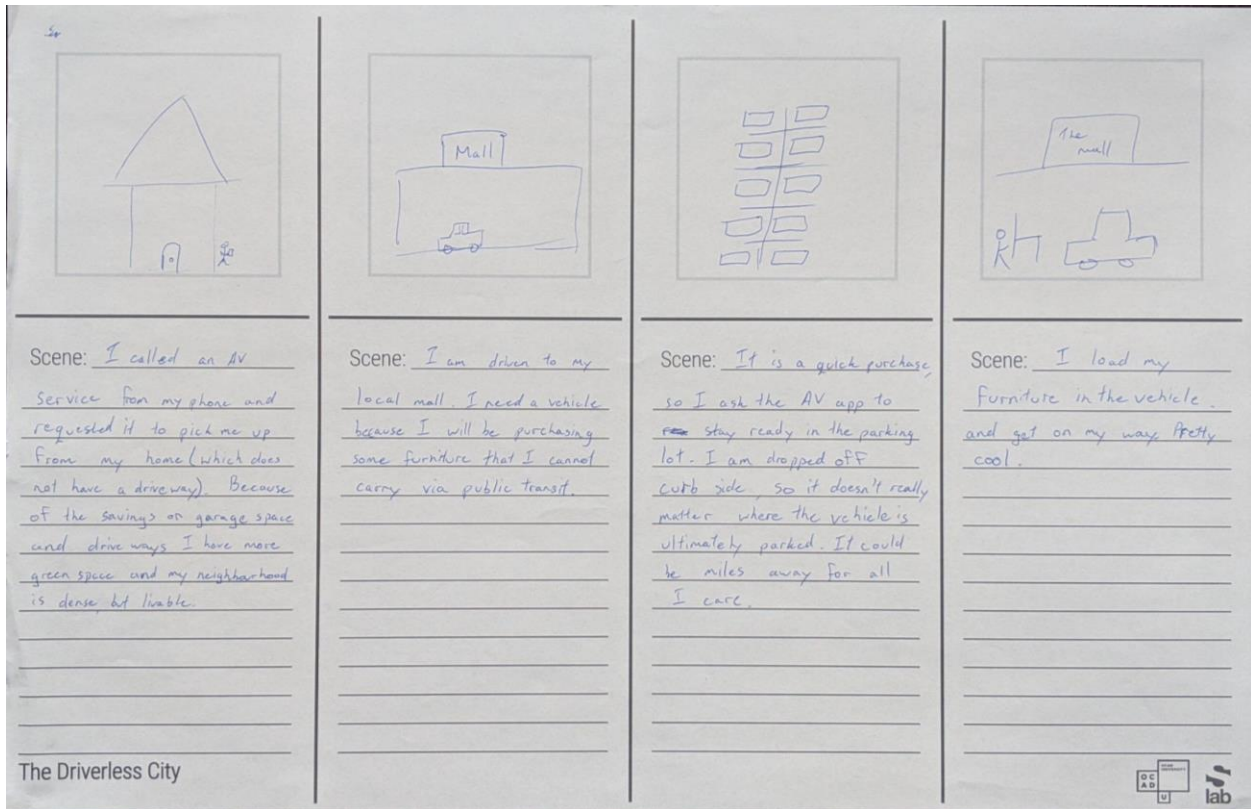 Mall
The
mall
Scene: I called an AV
service from my phone and
requested it to pick me up
from my home (which does
not have a driveway). Because
of the savings on garage space
and drive ways I have more
green space and my neighbourhood
is dense, but livable.
Scene: I am driven to my
local mall. I need a vehicle
because I will be purchasing
some furniture that I cannot
carry via public transit.
Scene: It is a quick purchase,
so I ask the AV app to
stay ready in the parking
lot. I am dropped off
curb side, so it doesn't really
matter where the vehicle is
ultimately parked. It could
be miles away for all
I care.
Scene: I load my
furniture in the vehicle.
and get on my way. Pretty
cool.
The Driverless City
OC
AD
U
S
lab